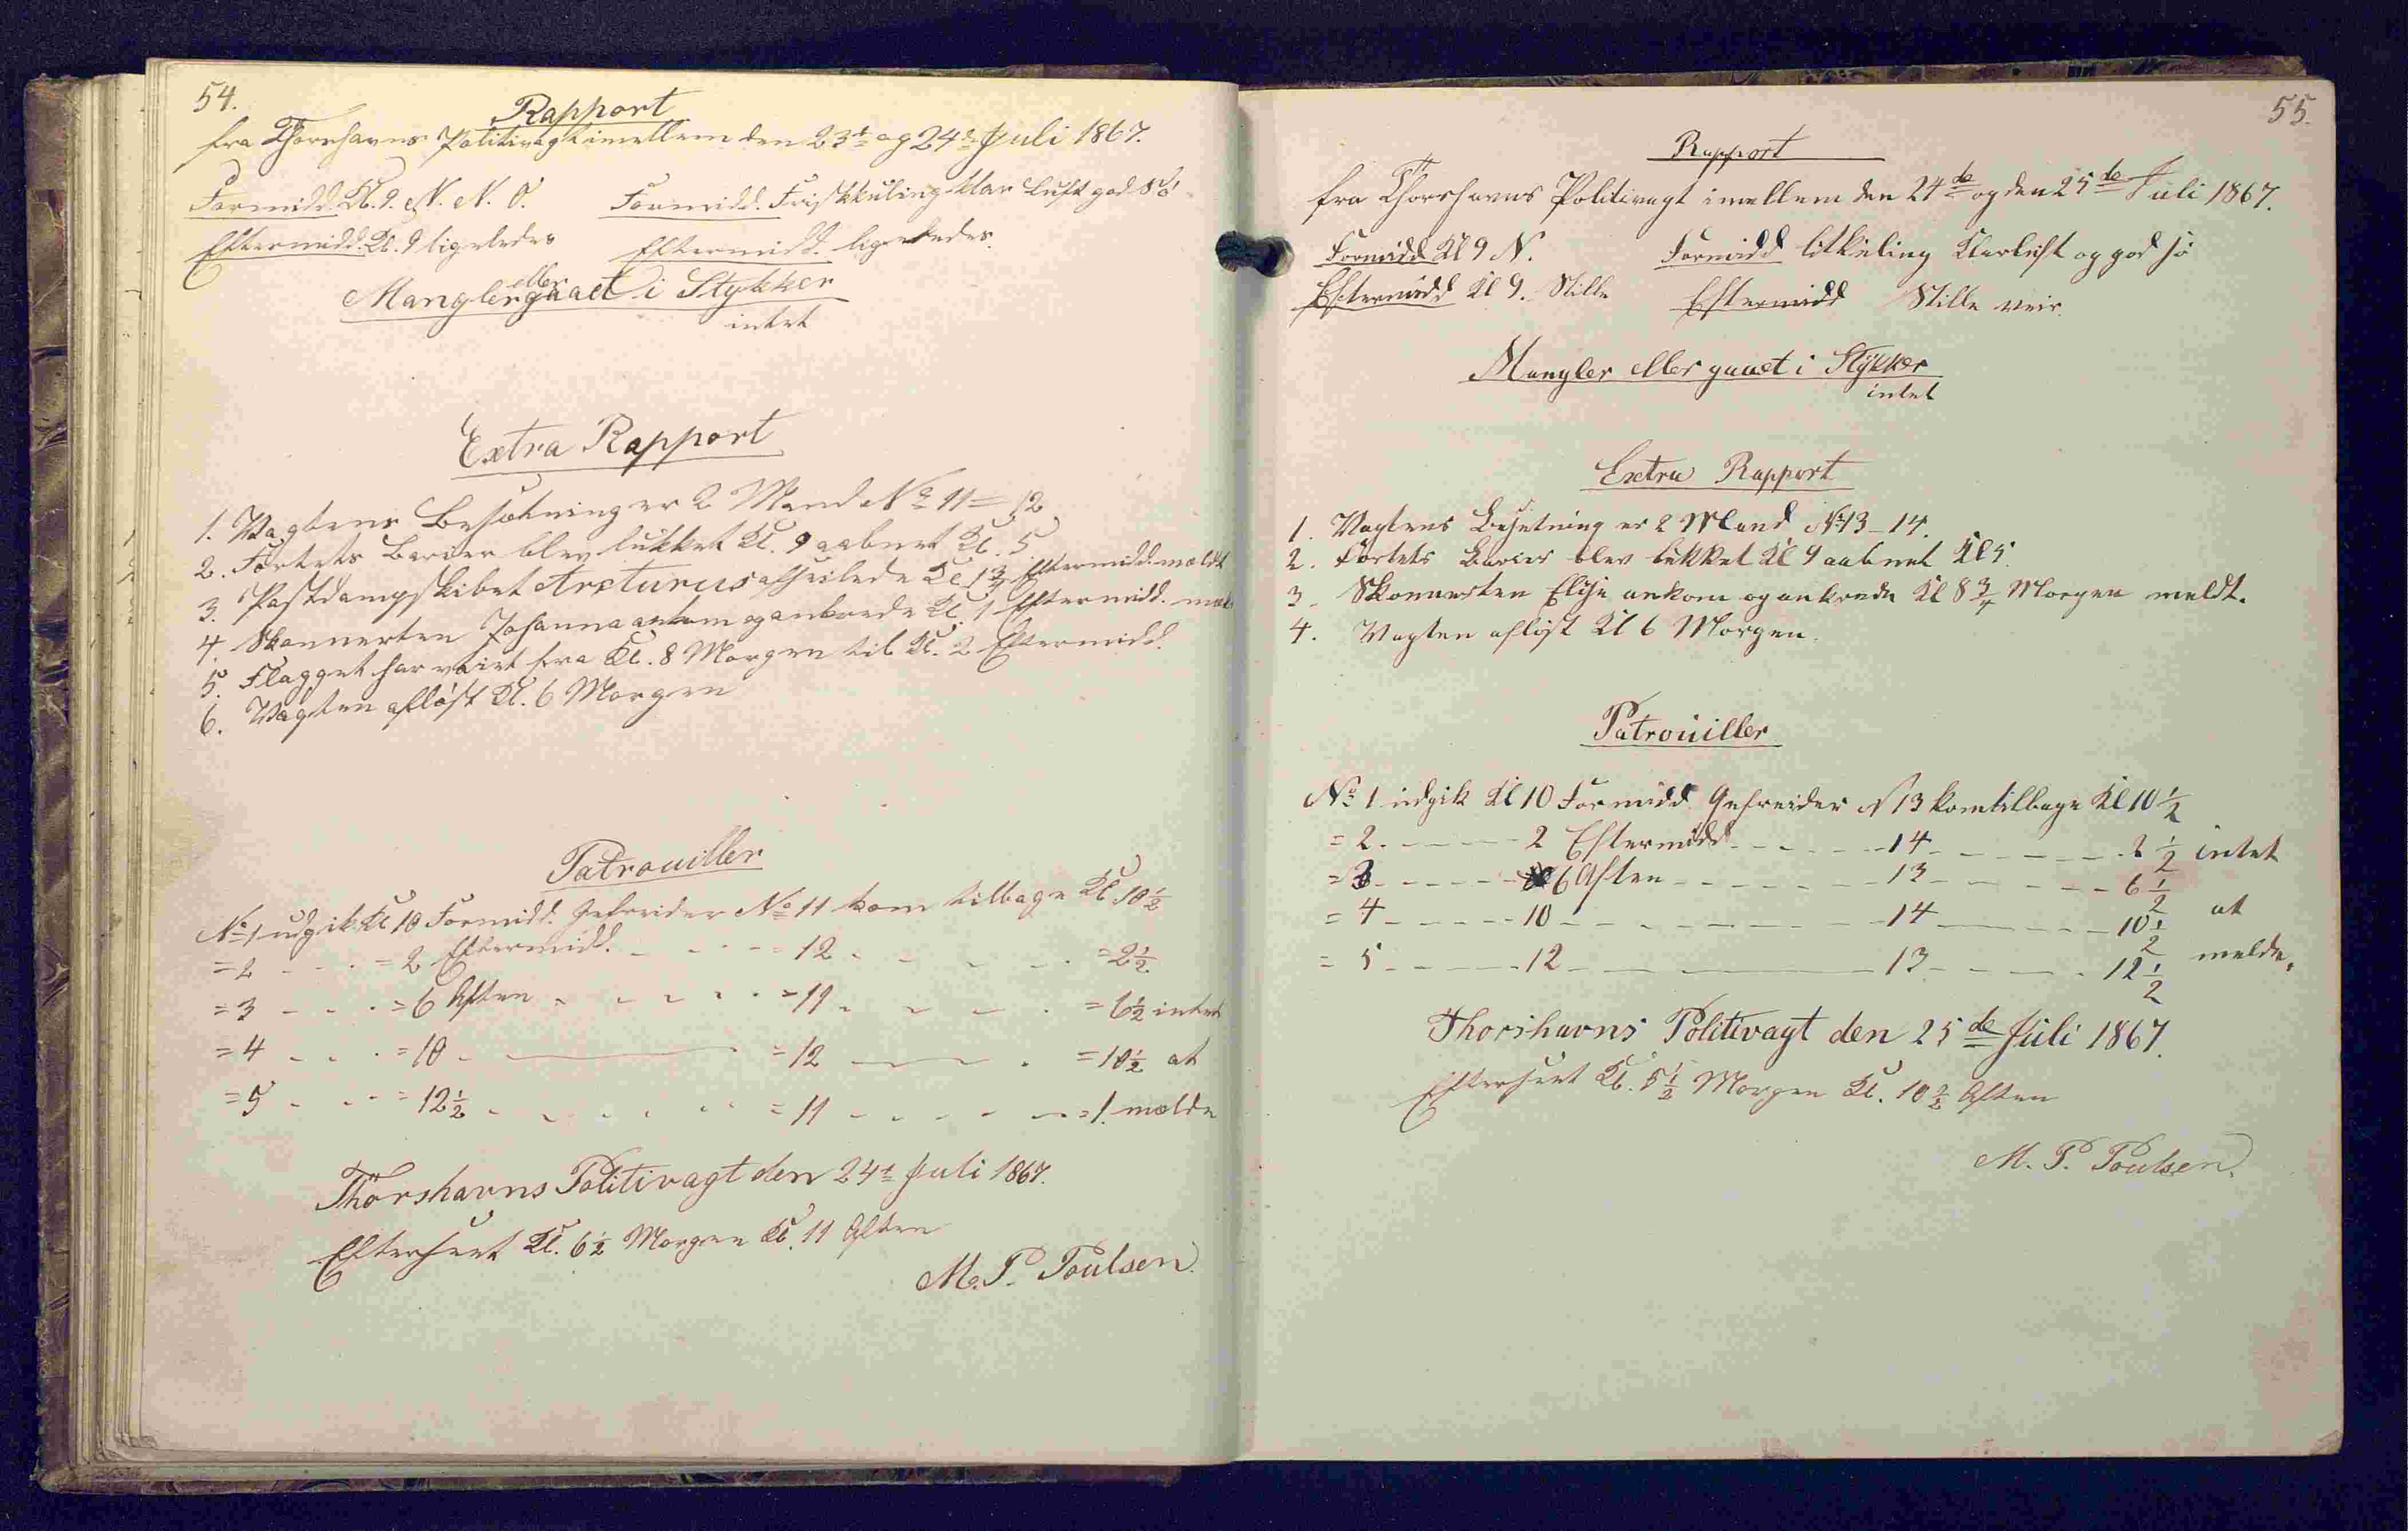 54.
Rapport
fra Thorshavns Politivagt imellem den 23de og 24de Juli 1867.
Formidd. Kl. 9. N. N. O. Formidd. Friskkuling klar Luft god Sö
Eftermidd. Kl. 9 ligeledes Eftermidd. ligeledes.
Mangler eller gaaet i Stykker
intet
Extra Rapport
1. Vagtens Besætning er 2 Mand No 11 = 12.
2. Fortets Barier blev lukket Kl. 9 aabnet Kl. 5
3. Postdampskibet Arcturus afseilede Kl 1 3/4 Eftermidd. meldt
4. Skonnerten Johanna ankom og ankrede Kl. 1 Eftermidd. meldt
5. Flagget har vaiet fra Kl. 8 Morgen til Kl. 2 Eftermidd.
6. Vagten aflöst Kl. 6 Morgen
Patrouiller
No 1 udgik Kl 10 Formidd. Gefreider No 11 kom tilbage Kl. 10 1/2
= 2 - - - = 2 Eftermidd. - - - = 12 - - - = 2 1/2
= 3 - - - = 6 Aften - - - = 11 - - - = 6 1/2 intet
= 4 - - - = 10 - - - = 12 - - - = 10 1/2 at
= 5 - - - = 12 1/2 - - - = 11 - - - = 1. melde
Thorshavns Politivagt den 24de Juli 1867.
Efterseet Kl. 6 1/2 Morgen Kl. 11 Aften
M. P. Poulsen.
55.
Rapport
fra Thorshavns Politivagt imellem den 24de og den 25de Juli 1867.
Formidd Kl 9 N. Formidd litkuling Klarluft og god sö
Eftermidd Kl 9. Stille Eftermidd Stille veir.
Mangler eller gaaet i Stykker
intet
Extra Rapport
1. Vagtens Besetning er 2 Mand No 13 - 14.
2. Fortets Barier blev lukket Kl 9 aabnet Kl 5.
3 - Skonnerten ankom og ankrede Kl 8 3/4 Morgen meldt.
4. Vagten aflöst Kl 6 Morgen.
Patrouiller
No 1 udgik Kl 10 Formidd Gefreider N 13 kom tilbage Kl 10 1/2
= 2. - - - 2 Eftermidd - - - 14 - - - 2 1/2 intet
= 3 - - - 6 Aften - - - 13 - - - 6 1/2
= 4 - - - 10 - - - 14 - - - 10 1/2 at
= 5 - - - 12 - - - 13 - - - 12 1/2 melde.
Thorshavns Politivagt den 25de Juli 1867.
Efterseet Kl. 5 1/2 Morgen Kl. 10 1/2 Aften
M. P. Poulsen.